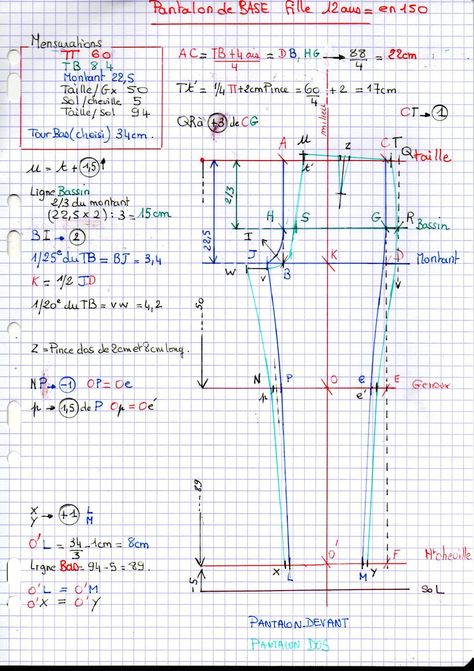 Pantalon de BASE fille 12 ans = en 150
Mensurations
TT 60
TB 84
Montant 22,5
Taille/Gx 50
Sol/cheville 5
Taille/sol 94
Tour Bas (choisi) 34 cm.
AC = TB + 4 ans / 4 = DB, HG → 88/4 = 22cm
Tt' = 1/4 TT + 2cm Pince = 60/4 + 2 = 17cm
QR à +3 de CG
CT → 1
milieu
μ = t + 1,5 ↑
Ligne Bassin
2/3 du montant
(22,5 x 2) : 3 = 15 cm
BI → 2
1/25e du TB = BJ = 3,4
K = 1/2 JD
1/20e du TB = vw = 4,2
Z = Pince dos de 2cm et 8cm long.
NP → -1 OP = Oe
p → 1,5 de P Op = Oe'
X → +1 L
Y M
O'L = 34/3 - 1cm = 8cm
Ligne Bas = 94 - 5 = 89.
O'L = O'M
O'X = O'Y
A μ t' Z C T Q taille
2/3 22,5
H S G R Bassin
I
J W V B K D Montant
50
N P O e E Genoux
p e'
89
O' F Ht cheville
X L M Y
5
SOL
PANTALON DEVANT
PANTALON DOS